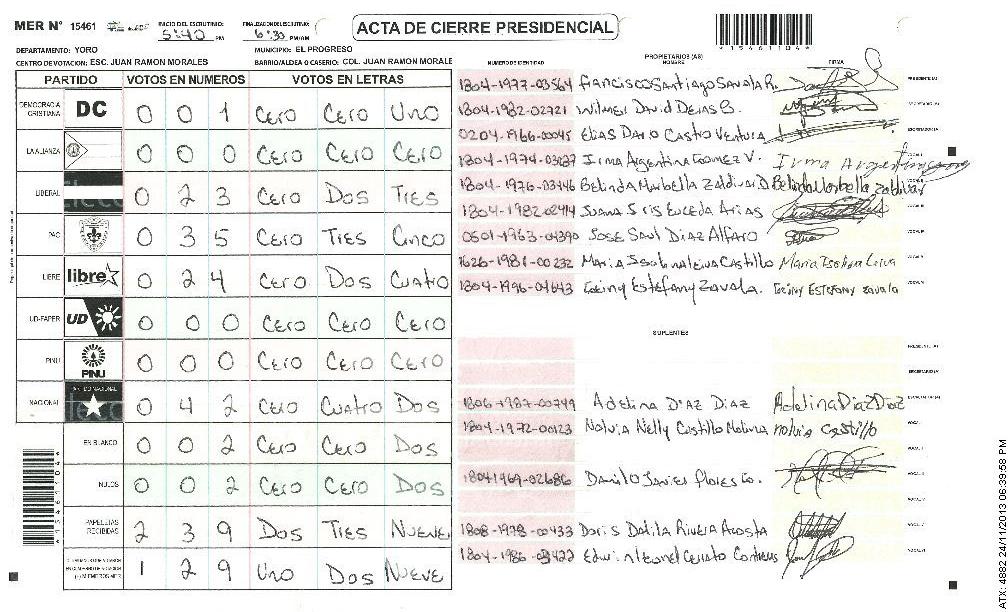 MER N° 15461
INICIO DEL ESCRUTINIO: 5:40 PM
FINALIZACION DEL ESCRUTINIO: 6:30 PM/AM
ACTA DE CIERRE PRESIDENCIAL
*15461104*
DEPARTAMENTO: YORO
MUNICIPIO: EL PROGRESO
CENTRO DE VOTACION: ESC. JUAN RAMON MORALES
BARRIO/ALDEA O CASERIO: COL. JUAN RAMON MORALE
PARTIDO VOTOS EN NUMEROS VOTOS EN LETRAS
DEMOCRACIA CRISTIANA DC 0 0 1 Cero Cero Uno
LA ALIANZA 0 0 0 Cero Cero Cero
LIBERAL 0 2 3 Cero Dos Tres
PAC 0 3 5 Cero Tres Cinco
LIBRE libre 0 2 4 Cero Dos Cuatro
UD-FAPER UD 0 0 0 Cero Cero Cero
PINU PINU 0 0 0 Cero Cero Cero
NACIONAL 0 4 2 Cero Cuatro Dos
EN BLANCO 0 0 2 Cero Cero Dos
NULOS 0 0 2 Cero Cero Dos
PAPELETAS RECIBIDAS 2 3 9 Dos Tres Nueve
1 2 9 Uno Dos Nueve
PROPIETARIOS (AS)
NUMERO DE IDENTIDAD NOMBRE FIRMA
1804-1977-03564 Francisco Santiago Savala R. PRESIDENTE (A)
1804-1982-02721 Wilmer David SECRETARIO (A)
0204-1966-00045 Elias Dario Castro Ventura ESCRUTADOR (A)
1804-1974-03037 Irma Argentina Gomez V. Irma Argentina VOCAL I
1804-1976-03446 Belinda Marbella Zaldivar D. Belinda Marbella Zaldivar VOCAL II
1804-1982-02414 Juana Iris Euceda Arias VOCAL III
0501-1963-04390 Jose Saul Diaz Alfaro VOCAL IV
1626-1981-00232 Maria Isabel Leiva Castillo Maria Leiva VOCAL V
1804-1996-04643 Estefany Zavala. Estefany Zavala VOCAL VI
SUPLENTES
PRESIDENTE (A)
SECRETARIO (A)
1806-1987-00749 Adelina Diaz Diaz Adelina Diaz Diaz ESCRUTADOR (A)
1804-1972-00123 Nolvia Nelly Castillo Molina Nolvia Castillo VOCAL I
VOCAL II
1804 1969-02686 Danilo Javier Flores VOCAL III
1808-1978-00433 Doris Dalila Rivera Acosta VOCAL V
1804-1986-03422 Edwin Leonel Cerrato Contreras VOCAL VI
*15461104*
ATX: 4882 24/11/2013 06:39:58 PM